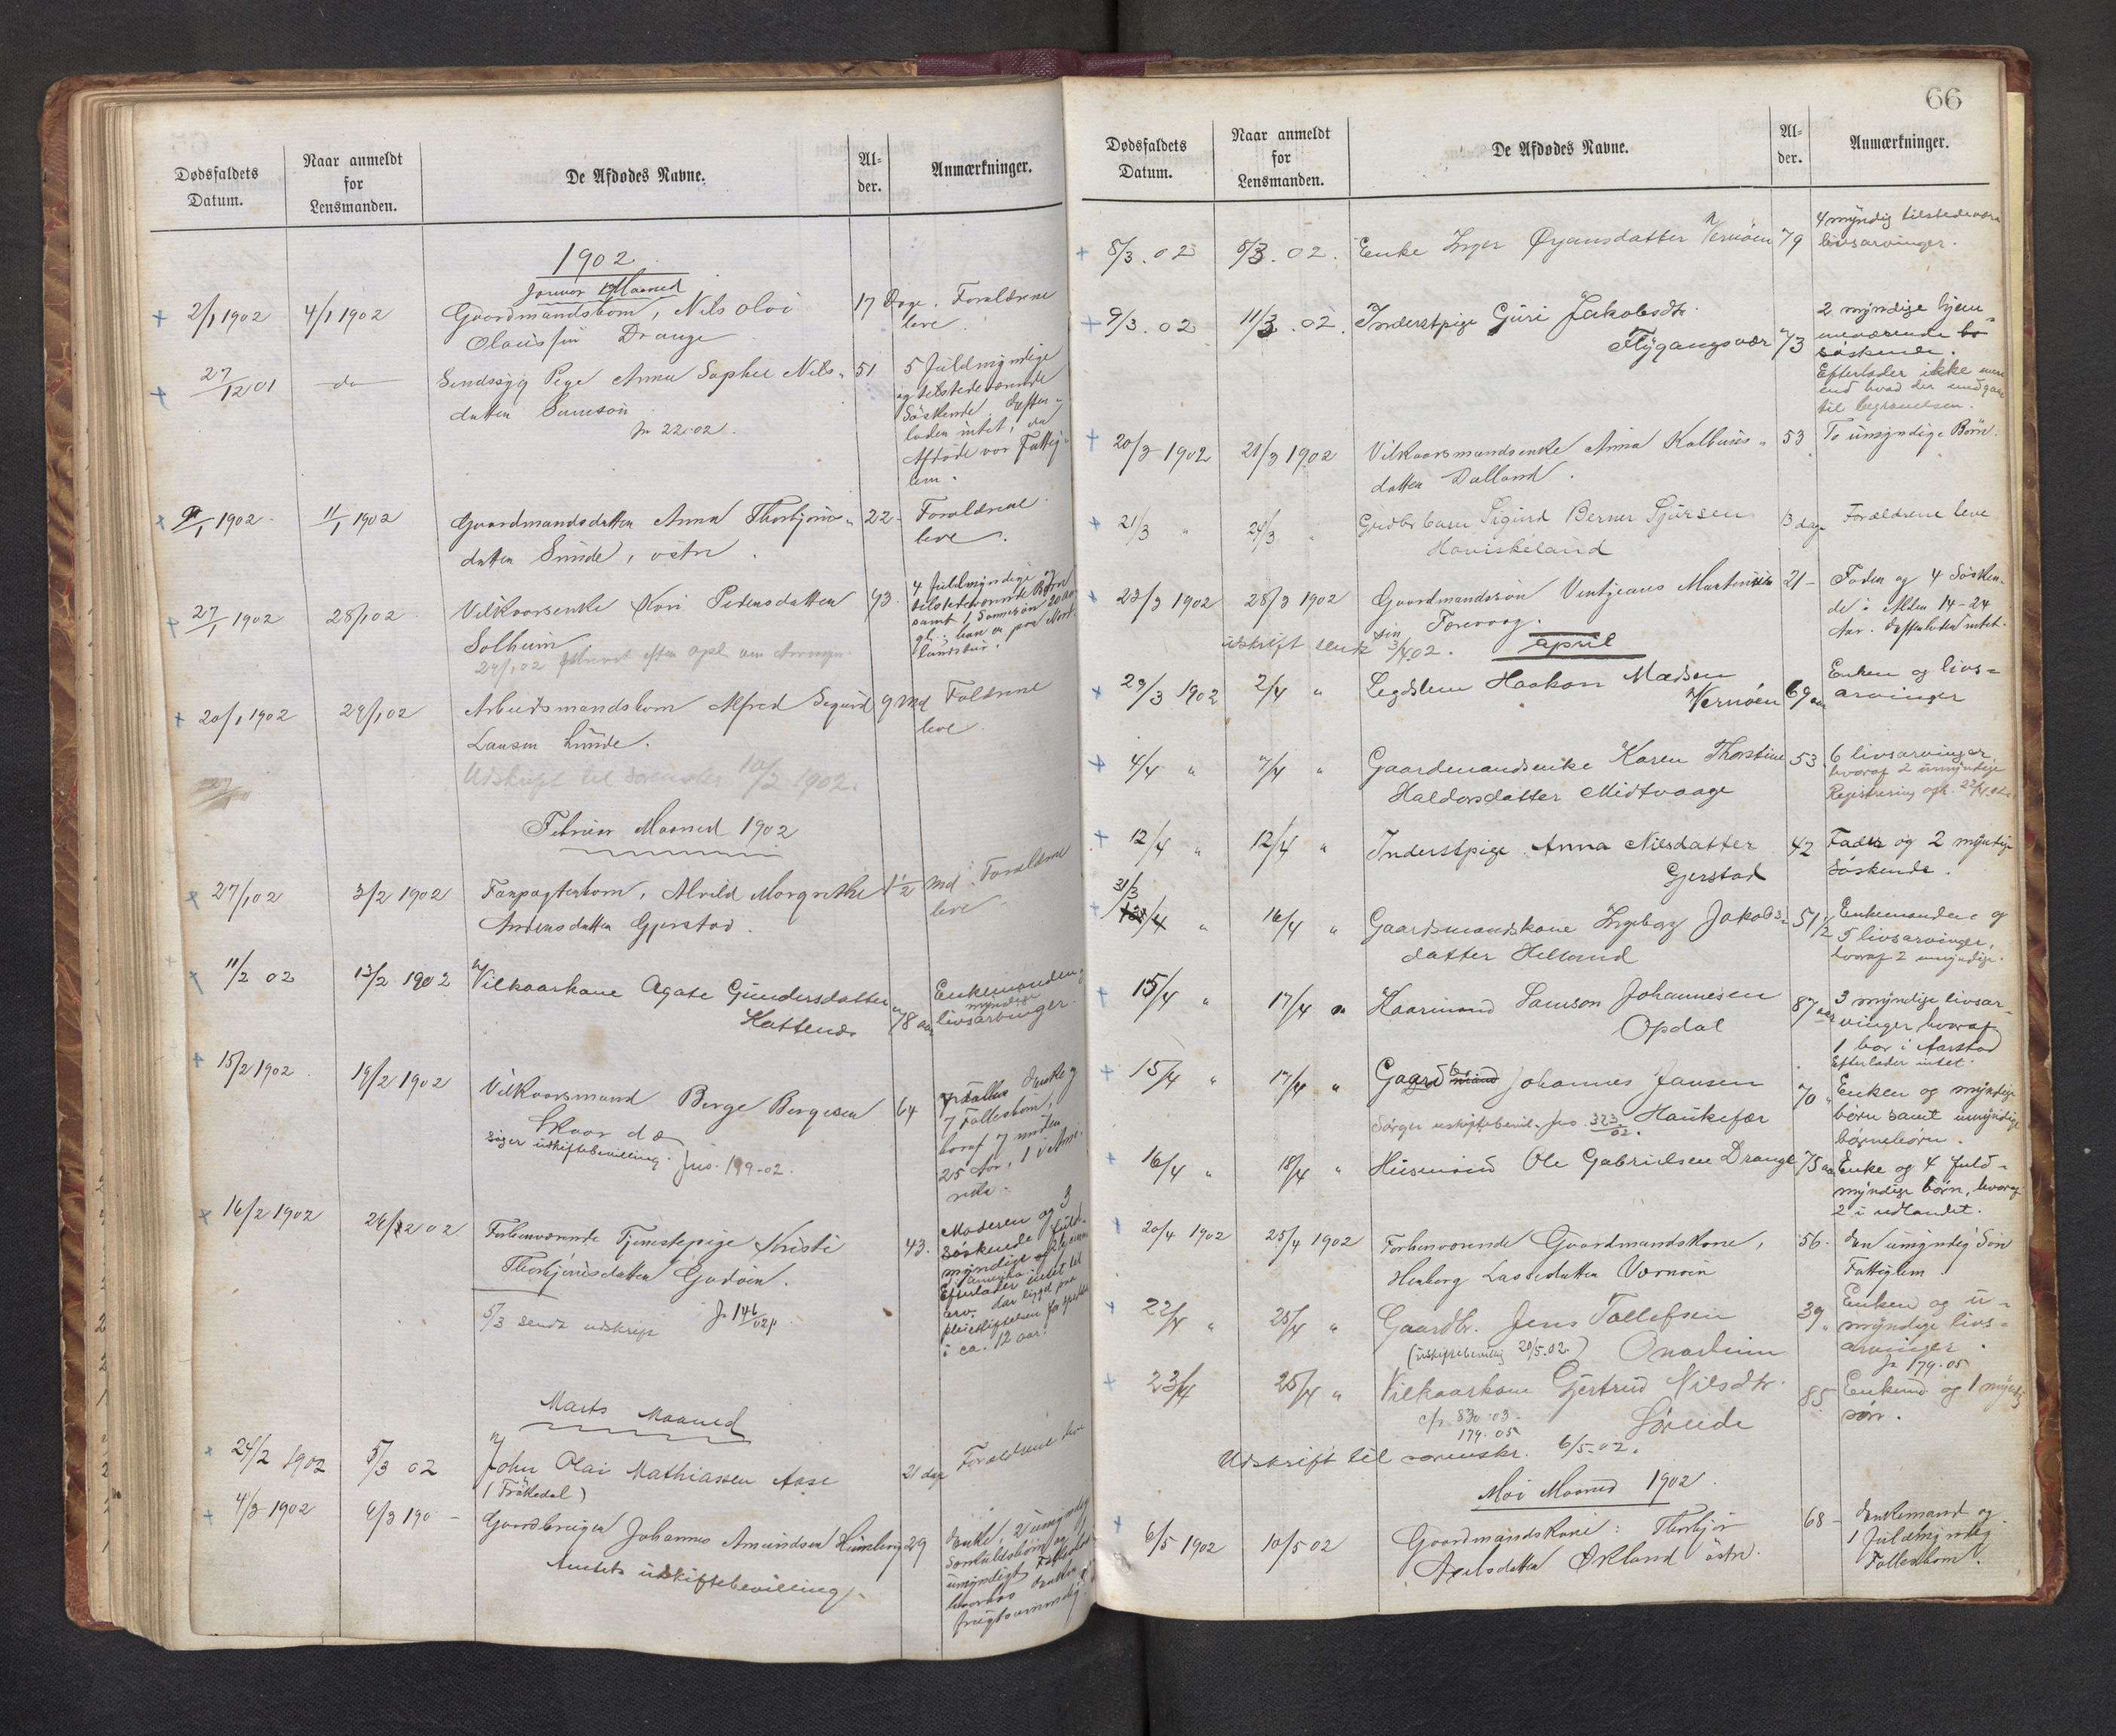 Dødsfaldets Datum.
Naar anmeldt for Lensmanden.
De Afdødes Navne.
Al-der.
Anmærkninger.
1902
Januar Maaned
+ 2/1 1902 4/1 1902 Gaardmandsbarn, Nils Olai 17 Dage. Forældrene
Olaissøn Drange leve.
+ 27/12 01 do Sindssyg Pige Anna Sophie Nils- 51 5 fuldmyndige
datter Samson og tilstedeværende
Jr 22.02. Søskende. Efter-
lader intet, da
Afdøde var Fattig-
lem.
+ 9/1 1902 11/1 1902 Gaardmandsdatter Anna Thorbjørns- 22 Forældrene
datter Sunde, østre. leve.
+ 27/1 1902 28/1 02 Vilkaarsenke Kari Pedersdatter 93. 4 fuldmyndige og
Solheim tilstedeværende Børn
samt 1 Sønnesøn 20 aar
gl.; han er paa Nord-
landstur.
+ 20/1 1902 29/1 02 Arbeidsmandsbarn Alfred Sigurd 9 Md Forældrene
Larsen Lunde. leve.
Udskrift til sorenskr 10/2 1902.
Februar Maaned 1902
+ 27/1 02 3/2 1902 Forpagterbarn, Alvild Margrethe 1½ Md. Forældrene
Andersdatter Gjerstad. leve
+ 11/2 02 13/2 1902 Vilkaarkone Agate Gundersdatter 78 aar Enkemanden og
Hattenes myndige
livsarvinger.
+ 15/2 1902 19/2 1902 Vilkaarsmand Børge Børgesen 64 Enke og
Skaar 7 Fællesbørn,
søger uskiftebevilling. Jrs. 199-02. hvoraf 7 under
25 Aar, 1 i Ame-
rika.
+ 16/2 1902 24/2 02 Forhenværende Tjenestepige Kristi 43. Moderen og 3
Thorbjørnsdatter Godøen. Søskende fuld-
5/3 sendt udskrift Jr 146/02 myndige
Efterlader intet til
arv. har ligget paa
pleiestiftelsen for spedalske
i ca. 12 aar.
Marts Maaned
+ 24/2 1902 5/3 02 John Olai Mathiassen Aase 21 dage Forældrene leve
(Frøkedal)
+ 4/3 1902 6/3 190 - Gaardbruger Johannes Amundsen Heimberg 29 Enke, 2 umyndige
Amtets uskiftebevilling.
66
Dødsfaldets Datum.
Naar anmeldt for Lensmanden.
De Afdødes Navne.
Al-der.
Anmærkninger.
+ 8/3. 02 8/3. 02. Enke Inger Ørjansdatter Vernøen 79 4 myndig tilstedeværende
livsarvinger.
+ 9/3. 02 11/3. 02. Inderstpige Guri Jakobsdtr. 73 2 myndige hjem-
Flygangsvær meværende
søskende.
Efterlader ikke mere
end hvad der undgaar
til begravelsen.
+ 20/3 1902 21/3 1902 Vilkaarsmandsenke Anna Kolbeins- 53 To umyndige Børn.
datter Dalland.
+ 21/3 " 24/3 " Grdbr barn Sigurd Berner Sjursen 3 dage Forældrene leve
Haviskeland
+ 23/3 1902 28/3 1902 Gaardmandssøn Ventzeaus Martinius- 21- Fader og 4 Søsken-
søn Førevaag. de i Alder 14-24
Aar. Efterlader intet.
udskrift sendt 3/4.02. April
+ 29/3 1902 2/4 " Legdslem Haakon Madsen 69 aar Enken og livs-
Vernøen arvinger
+ 4/4 " 7/4 " Gaardmandsenke Karen Thorstine 53. 6 livsarvinger,
Haldorsdatter Midtvaage hvoraf 2 umyndige
Registrering oph. 22/4.02.
+ 12/4 " 12/4 " Inderstpige Anna Nilsdatter 42 Fader og 2 myndige
Gjerstad Søskende.
+ 31/3 " 16/4 " Gaardmandskone Ingeborg Jakobs- 51½ Enkemanden og
datter Helland 5 livsarvinger,
hvoraf 2 umyndige.
+ 15/4 " 17/4 " Kaarmand Samson Johannesen 87 aar 3 myndige livsar-
Opdal vinger hvoraf
1 bor i Aarstad
Efterlader intet.
+ 15/4 " 17/4 " Gaardbr Johannes Jansen 70 " Enken og myndige
Sørger uskiftebevil. Jrs. 323/02. Haukefær børn samt umyndige
børnebørn.
+ 16/4 " 18/4 " Husmand Ole Gabrielsen Drange 75 aar Enke og 4 fuld-
myndige børn, hvoraf
2 i udlandet.
+ 20/4 1902 25/4 1902 Forhenværende Gaardmandskone, 56. En umyndig Søn
Herborg Lassedatter Værnøen Fattiglem.
+ 22/4 " 25/4 " Gaardbr. Jens Tollefsen 39 " Enken og u-
(uskiftebevilling 20/5.02.) Onarheim myndige livs-
arvinger.
Jr 179.05
+ 23/4 25/4 " Vilkaarkone Gjertrud Nilsdtr. 85 Enkemd og 1 myndig
cfr. 830.03. Søreide søn.
179.05
Udskrift til sorenskr. 6/5.02.
Mai Maaned 1902.
+ 6/5 1902 10/5 02 Gaardmandskone: Thorbjør 68- Enkemand og
Axelsdatter Økland østre. 1 fuldmyndig
Fællesbarn.